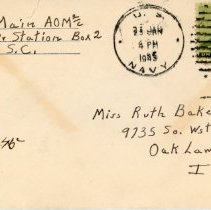 Main AOM 2/c
Station Box 2
S.C.
U. S.
23 JAN
4 PM
1945
NAVY
Miss Ruth Bake
9735 So. Wst
Oak Law
I